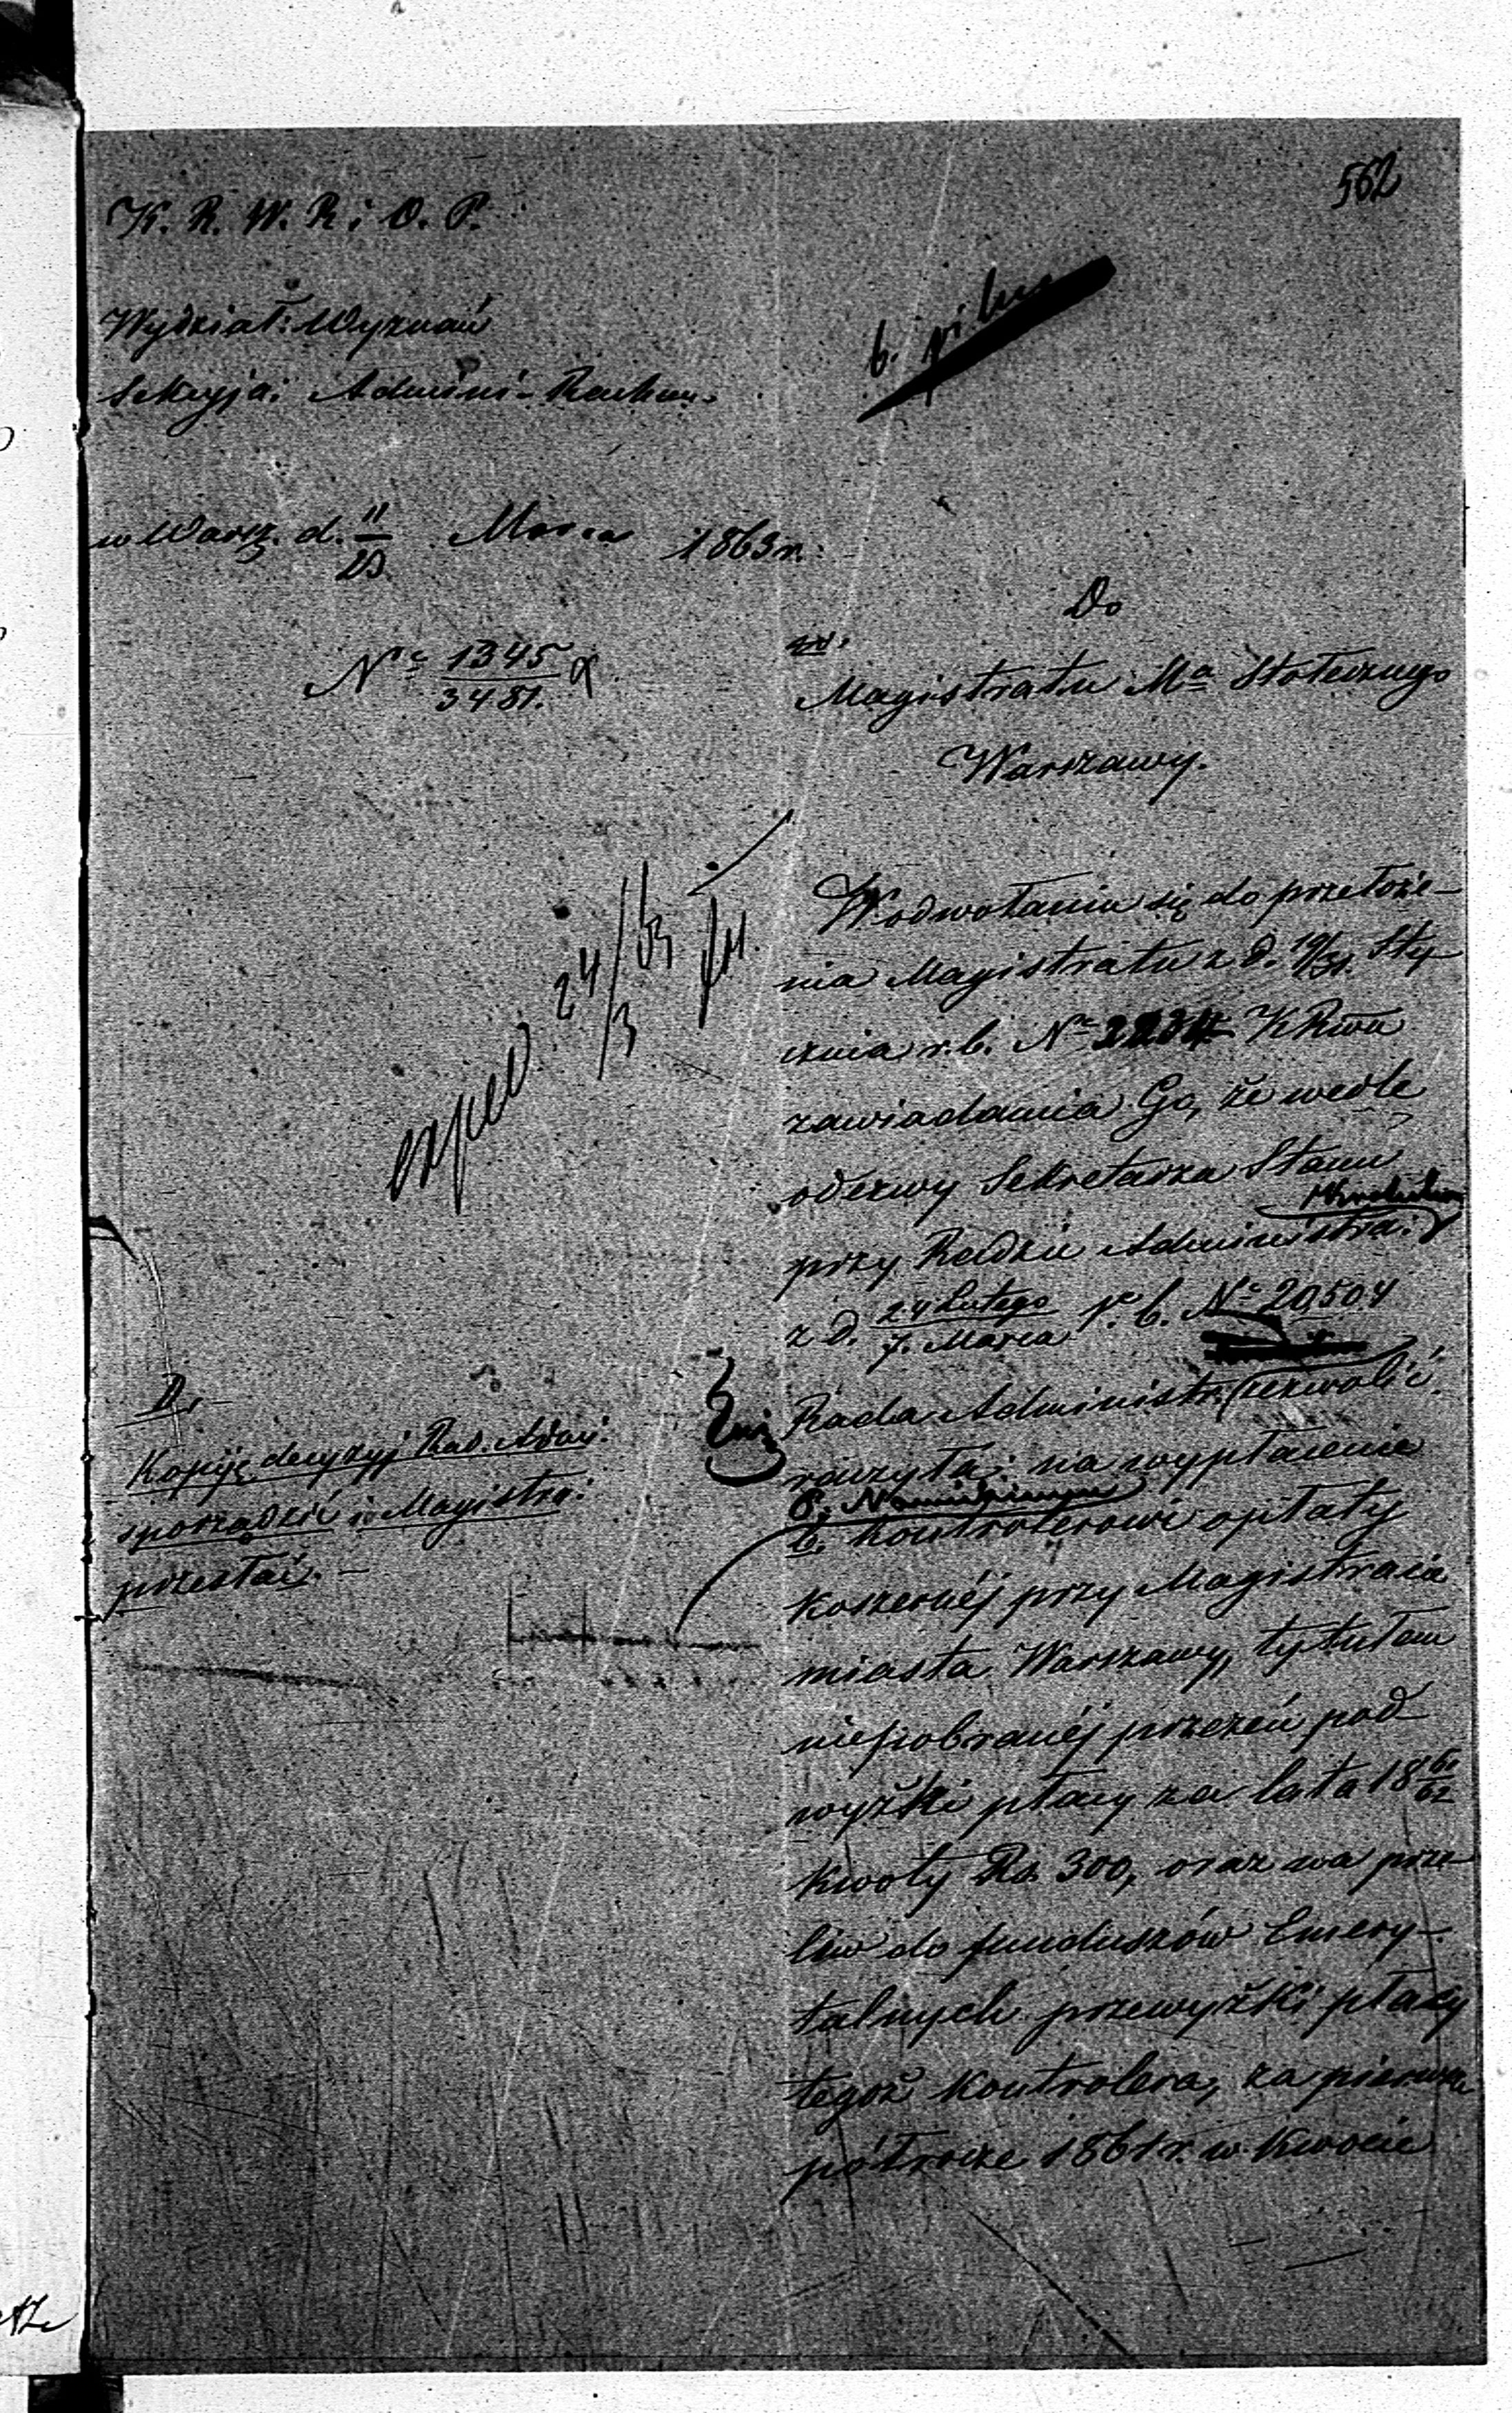 562
K. R. W. R. i O. P.
b. pilne
Wydział: Wyznań
Sekcyja: Admini-Rachun.
w Warsz. d. 11/23 Marca 1863 r.
Nr 1345/3481.
Do
Magistratu Ma Stołecznego
Warszawy.
W odwołaniu się do przełoże-
nia Magistratu z d. 19/31. Sty-
cznia r. b. Nr 2234 K R
zawiadamia Go, że wedle
odezwy Sekretarza Stanu
przy Radzie Administra:
z d. 24 Lutego/7. Marca r. b. Nr 20,504
Rada Administr: zezwolić
raczyła: na wypłacenie
b. Kontrolerowi opłaty
koszernéj przy Magistracie
miasta Warszawy, tytułem
niepobranéj przezeń pod
wyżki płacy za lata 18 61/62
kwoty Rs. 300, oraz na prze-
lew do funduszów Emery-
talnych przewyżki płacy
tegoż Kontrolera, za pierwsze
półrocze 1861 r. w kwocie
exped. 24/3 63
D.
Kopiję decyzyj Rad. Admi:
sporządzić i Magistra:
przesłać. -